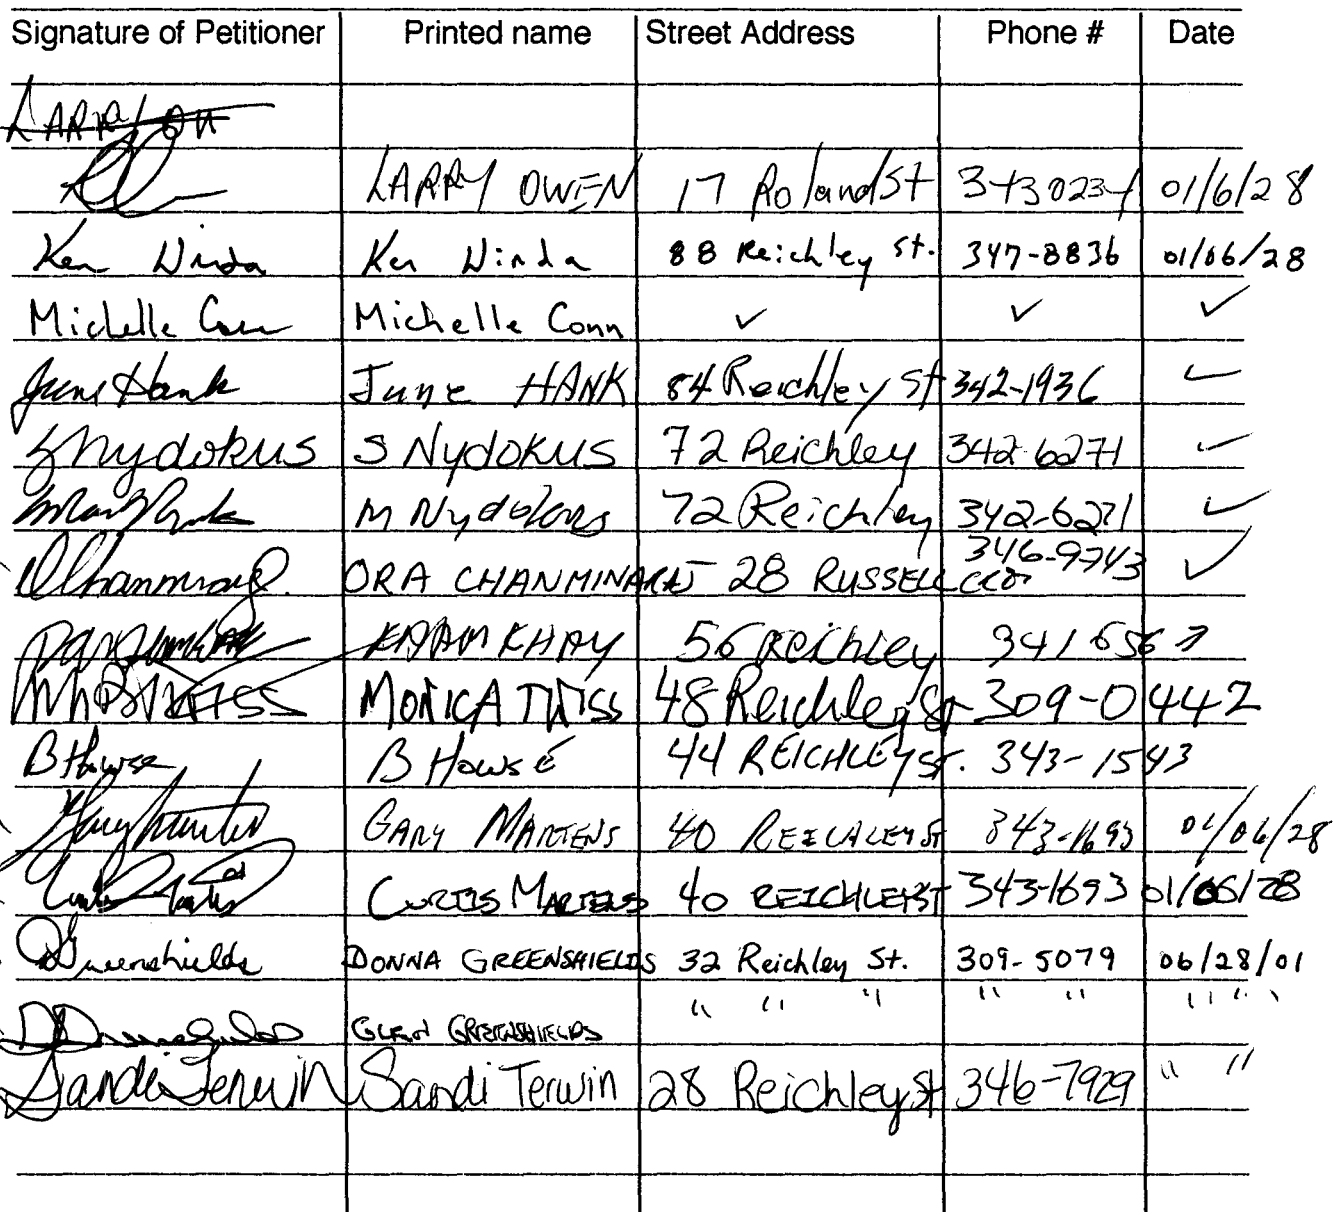 Signature of Petitioner Printed name Street Address Phone # Date
LARRY OW
LARRY OWEN 17 Roland St 343 0234 01/6/28
Ken Ninda Ken Ninda 88 Reichley St. 347-8836 01/06/28
Michelle Conn Michelle Conn ✓ ✓ ✓
June Hank June HANK 84 Reichley St 342-1936 ✓
S Nydokus S NYDOKUS 72 Reichley 342-6271 ✓
M Nydokus 72 Reichley 342-6271 ✓
ORA CHANMINARAJ 28 RUSSELL 346-9743 ✓
KHAY 56 Reichley 341 6567
MONICA TWISS 48 Reichley St 309-0442
B Howse B Howse 44 REICHLEY St. 343-1543
Gary Martens GARY MARTENS 40 REICHLEY St 343-1693 01/06/28
CURTIS MARTENS 40 REICHLEY ST 343-1693 01/06/28
D Greenshields DONNA GREENSHIELDS 32 Reichley St. 309-5079 06/28/01
GLEN GREENSHIELDS " " " " " " "
Sandi Terwin Sandi Terwin 28 Reichley St 346-7929 " "